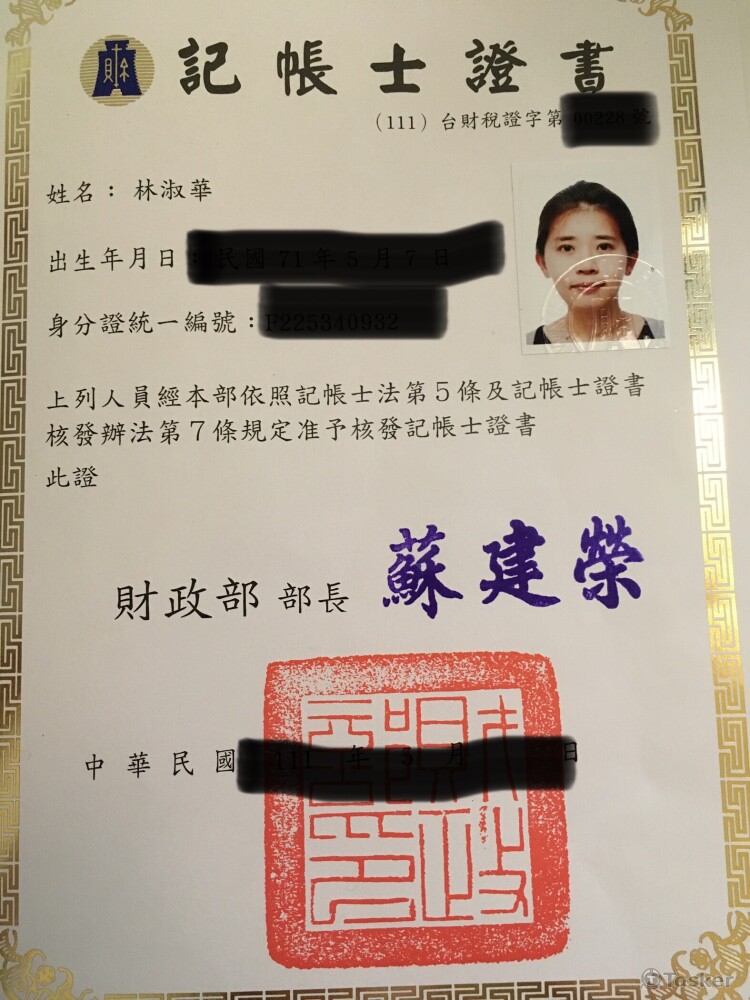 財
記帳士證書
(111) 台財稅證字第
姓名：林淑華
出生年月日：
身分證統一編號：
上列人員經本部依照記帳士法第5條及記帳士證書
核發辦法第7條規定准予核發記帳士證書
此證
財政部 部長 蘇建榮
中華民國 日
Tasker